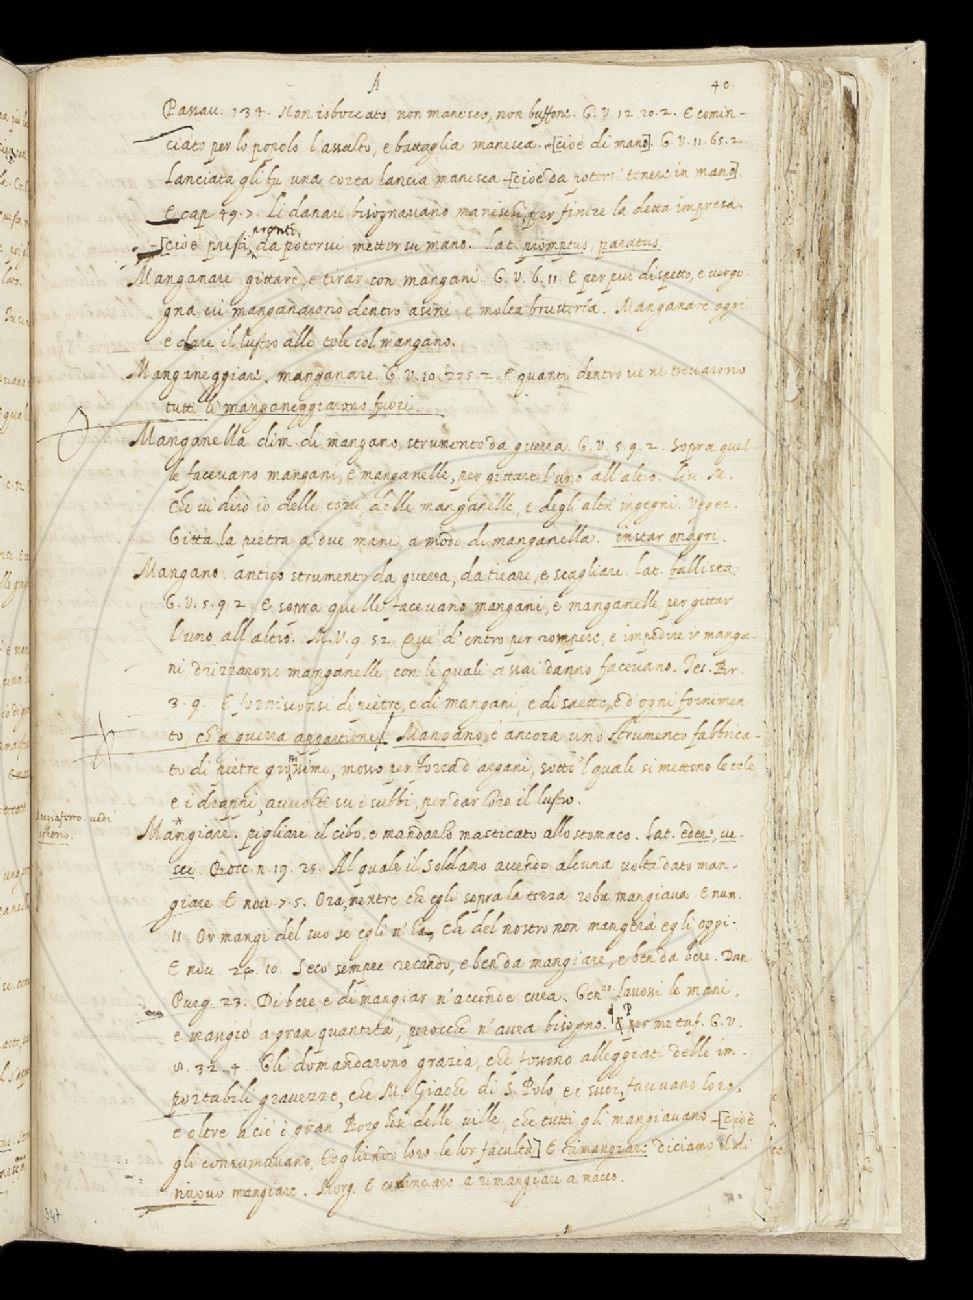 A
40.
Passau. 134. Non isboccato, non manesco, non buffone. G. V. 12. 20. 2. E comin-
ciato per lo popolo l'assalto, e battaglia manesca. [cioè di mano]. G. V. 11. 65. 2.
Lanciata gli fu una corta lancia manesca [cioè da potersi tenere in mano].
E cap. 49. 7. Li danari bisognavano maneschi, per finire la detta impresa.
pronti,
[cioè presti, da potervi metter su mano. Lat. promptus, paratus
Manganare gittare, e tirar con mangani. G. V. 6. 11. E per piu dispetto, e vergo-
gna vi manganarono dentro asini e molta bruttería. Manganare oggi
è dare il lustro alle tele col mangano.
Manganeggiare, manganare. G. V. 10. 225. 2. E quanto dentro ve ne trovarono
tutti li manganeggiarono fuori.
Manganella dim. di mangano, strumento da guerra. G. V. 5. 9. 2. Sopra quel-
le facevano mangani, e manganelle, per gittare l'uno all'altro. Liv. M.
Che vi dirò io delle torri, delle manganelle, e degli altri ingegni. Vegez.
Gitta la pietra a due mani, a modo di manganella. instar onagri.
Mangano. antico strumento da guerra, da tirare, e scagliare. Lat. ballista
G. V. 5. 9. 2. E sopra quelle facevano mangani, e manganelle, per gittar
l'uno all'altro. M. V. 9. 52. Que' d'entro per rompere, e impedire i manga-
ni, drizzarono manganelle, con le quali assai danno facevano. Tes. Br.
3. 9. E fornisconsi di pietre, e di mangani, e di saette, e d'ogni fornimen-
to ch'a guerra appartiene/ Mangano, è ancora uno strumento fabbrica-
to di pietre grossime, mosso per forza d'argani, sotto 'l quale si mettono le tele
e i drappi, avvolti su i subbi, per dar loro il lustro.
Mangiaferro. vedi
Mangiare. pigliare il cibo, e mandarlo masticato allo stomaco. Lat. edere, ve-
sci. Bocc. n. 19. 25. Al quale il Soldano avendo alcuna volta dato man-
giare E nov. 7. 5. Ora, mentre che egli sopra la terza roba mangiava E num.
11. Or mangi del suo se egli n'ha, che del nostro non mangerà egli oggi.
E nov. 20. 10. Seco sempre recando, e ben da mangiare, e ben da bere. Dan.
Purg. 23. Di bere, e di mangiar n'accende cura. Gen. lavossi le mani,
e mangiò a gran quantità, perocchè n'avea bisogno. ¶ per metaf. G. V.
8. 32. 4. Gli domandarono grazia, che fossono alleggiati delle im-
portabili gravezze, che M. Giache di S. Polo, e i suoi, facevano loro,
e oltre a ciò i gran Borghesi delle ville, che tutti gli mangiavano [cioè
gli consumavano, togliendo loro le lor facultà] E rimangiare diciamo il di
nuovo mangiare. Morg. E cominciare a rimangiare a macco.
347